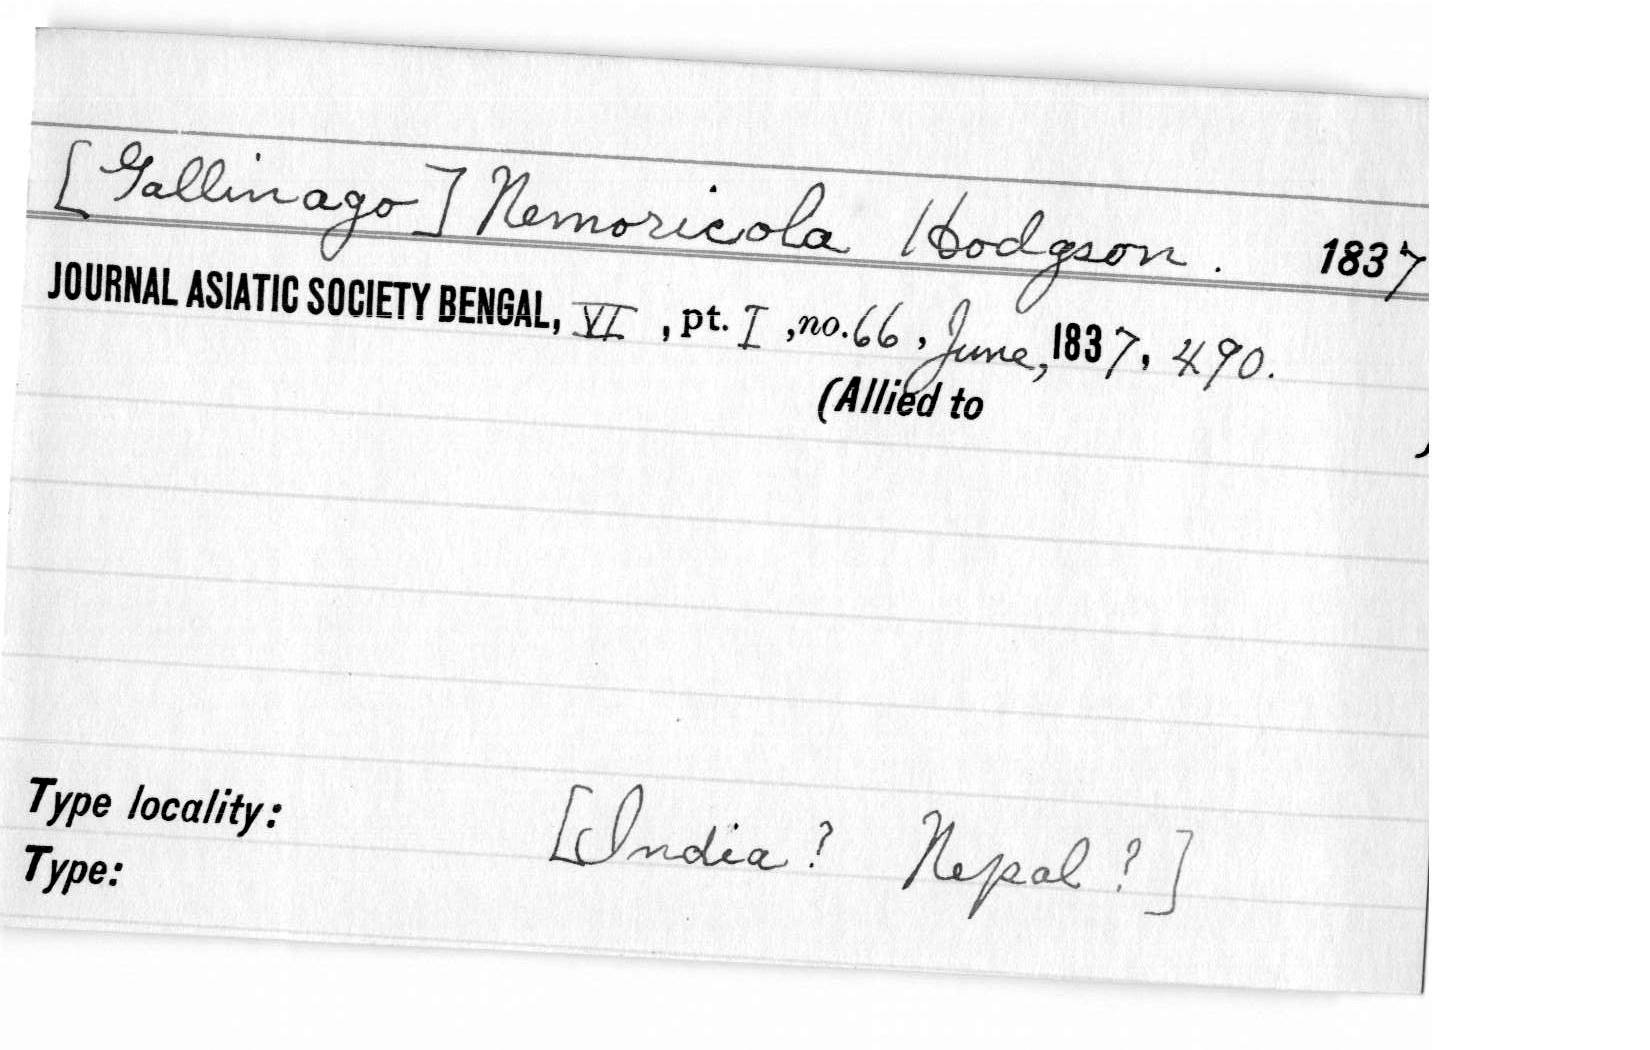 [Gallinago] Nemoricola Hodgson. 1837
JOURNAL ASIATIC SOCIETY BENGAL, VI, pt. I, no. 66, June, 1837, 490.
(Allied to )
Type locality:
[India? Nepal?]
Type: